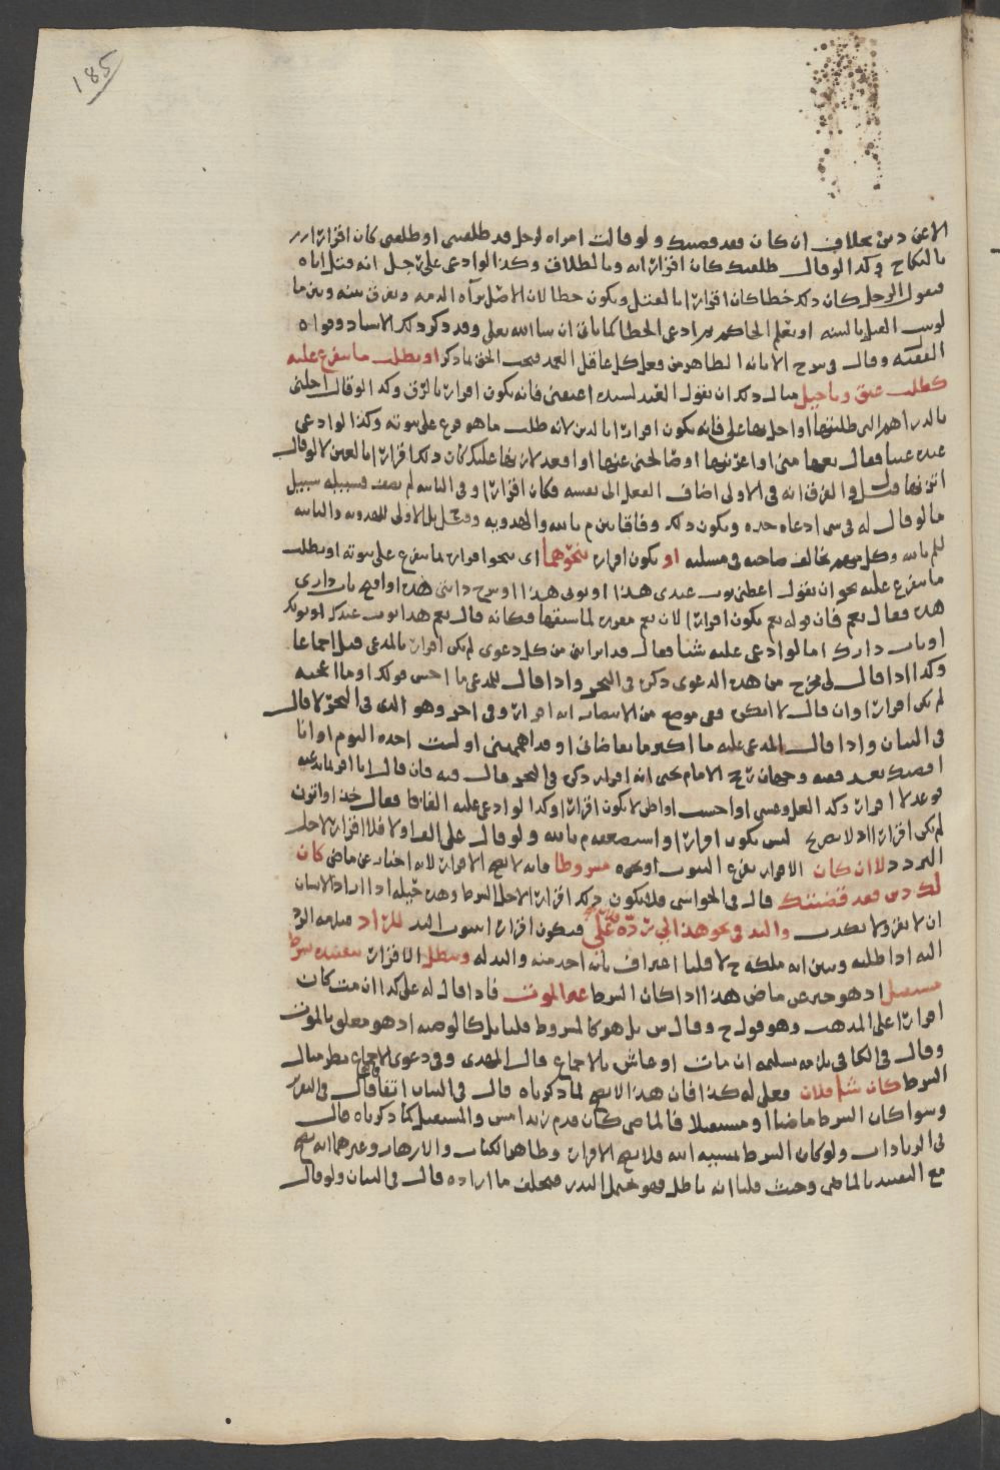 185
الا عن دين بخلاف ان كان فقد قضيتك ولو قالت امراه لرجل قد طلقتني او طلقني كان اقرارا
بالنكاح وكذا لو قال طلقتك كان اقرارا به وبالطلاق وكذا لو ادعى على رجل انه قتل اباه
فيقول الرجل كان ذلك خطا كان اقرارا بالقتل ويكون خطا لان الاصل براة الذمه ويفرق بينه وبين ما
لو ثبت القتل بالبينه او بعلم الحاكم ثم ادعى الخطا كما ياتي ان شا الله تعالى وقد ذكر ذلك الاستاد وقواه
الفقيه وقال في شرح الابانه الظاهر من فعل كل عاقل العمد او يطلب ما يتفرع عليه
كطلب عتق وتاجيل مثال ذلك ان يقول العبد لسيده اعتقني فانه يكون اقرارا بالرق وكذا لو قال اجلني
بالدراهم التي طلبتها او احل بها علي فانه يكون اقرارا بالدين لانه طلب ما هو فرع على ثبوته وكذا لو ادعى
عنده عينا فقال بعها مني او اعرنيها او صالحني عنها او اقعد لازنها عليك كان ذلك اقرارا بالعين لا لو قال
اتزنها قيل والفرق انه في الاولى اضاف الفعل الى نفسه فكان اقرارا وفي الثانيه لم يضف فسبيله سبيل
ما لو قال له في شي ادعاه خذه ويكون ذلك وفاقا بين م بالله والهدويه وقيل بل الاولى للهدويه والثانيه
للم بالله وكل منهم يخالف صاحبه في مسئلته او يكون اقرارا بنحوهما اي بنحو اقراره بما يتفرع على ثبوته او بطلب
ما يتفرع عليه نحو ان يقول اعطني ثوب عبدي هذا او ثوبي هذا او سرج دابتي هذه او افتح باب داري
هذه فقال نعم فان قوله نعم يكون اقرارا لان نعم مقرره لما سبقها فكانه قال نعم هذا ثوب عبدك او ثوبك
او باب دارك اما لو ادعى عليه شيئا فقال قد ابراتني من كل دعوى لم يكن اقرارا بالمدعى قيل اجماعا
وكذا اذا قال لي مخرج من هذه الدعوى ذكره في البحر واذا قال للمدعي ما احسن قولك او ما اعجبه
لم يكن اقرارا وان قال لا انكر ففي موضع من الانتصار انه اقرار وفي اخر وهو الذي في البحر لا قال
في البيان واذا قال المدعى عليه ما اكثر ما تقاضاني او قد اهمني او لست اخذه اليوم او انا
اقضيك بعد ففيه وجهان رجح الامام يحيى انه اقرار ذكره في البحر قال فيه فان قال انا اقر لما تدعيه
فوعد لا اقرار وكذا لعل وعسى او احسب او اظن لا يكون اقرارا وكذا لو ادعى عليه الفا فقال خذ او اتزن
لم يكن اقرارا اذ لا تصريح ليس يكون اقرارا واستضعفه م بالله ولو قال علي الف او لا فلا اقرار لاجل
التردد لا ان كان الاقرار بفرع الثبوت او نحوه مشروطا فانه لا يصح الاقرار لانه اخبار عن ماضي كان
لك دين فقد قضيتك قال في الحواشي فلا يكون ذلك اقرارا لاجل الشرط وهذه حيله اذا اراد الانسان
ان لا يقر ولا يكذب واليد في نحو هذا لي رده علي فيكون اقرارا بثبوت اليد للراد فيلزمه الرد
اليه اذا طلبه وبين انه ملكه ح لا قلنا اعتراف بانه اخذ منه واليد له ويبطل الاقرار بتقييده بشرط
مستقبل اذ هو خبر عن ماض هذا اذا كان الشرط غير الموت فاذا قال له علي كذا ان مت كان
اقرارا على المذهب وهو قول ح وقال س بل هو كالمشروط قلنا بل كالوصيه اذ هو معلق بالموت
وقال في الكافي يلزمه تسليمه ان مات او عاش بالاجماع قال المهدي وفي دعوى الاجماع نظر مثال
الشرط كان شا فلان فعلي له كذا فان هذا لا يصح لما ذكرناه قال في البيان اتفاقا قال في التقرير
وسوا كان الشرط ماضيا او مستقبلا فالماضي كان قدم زيد امس والمستقبل كما ذكرناه قال
في الزيادات ولو كان الشرط بمشيه الله فلا يصح الاقرار وظاهر الكتاب والازهار وغيرهما انه يصح
مع التقييد بالماضي وحيث قلنا انه باطل فهو يحتمل النذر فيحلف ما اراده قال في البيان ولو قال